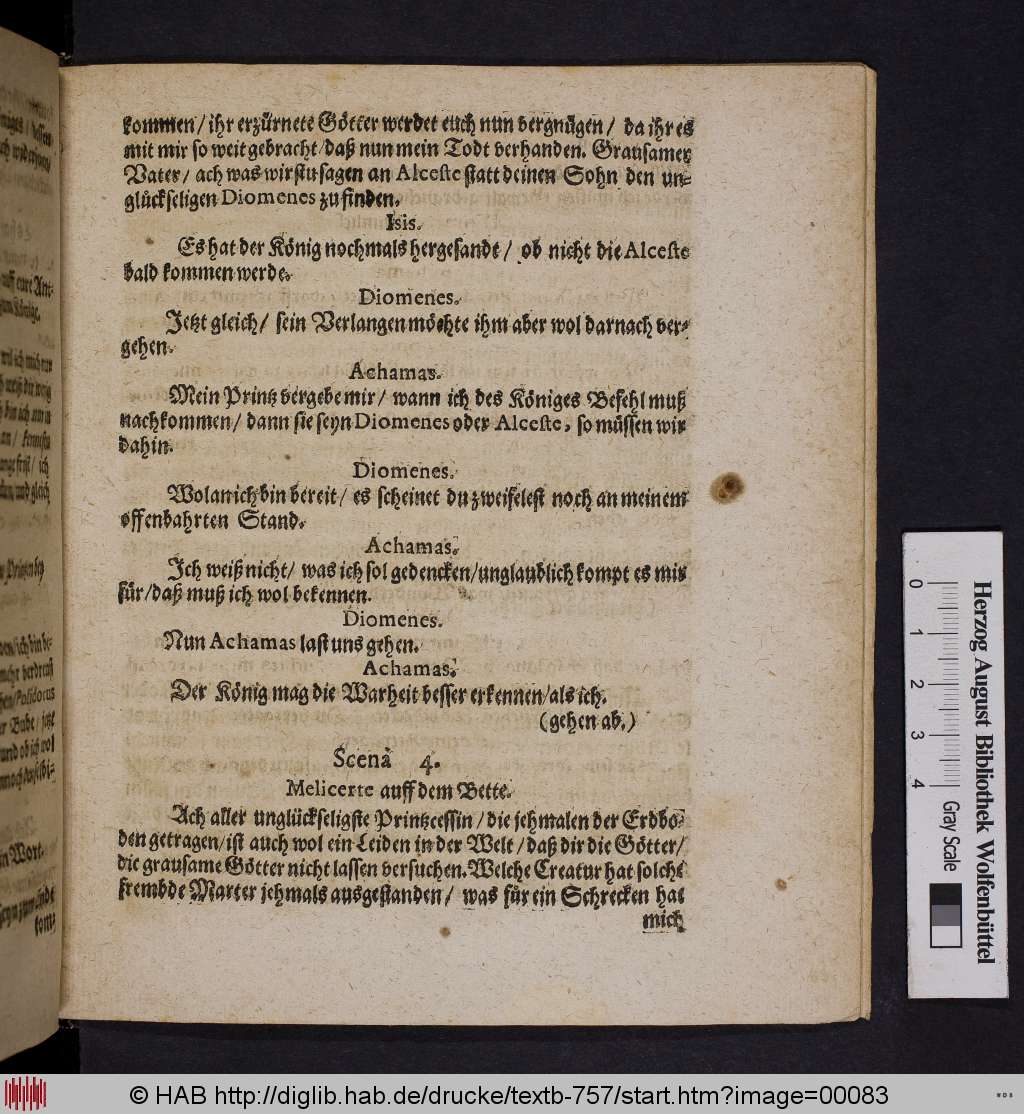 kommen / ihr erzürnete Götter werdet euch nun vergnügen / da ihr es
mit mir so weit gebracht / daß nun mein Todt verhanden. Grausamer
Vater / ach was wirstu sagen an Alceste statt deinen Sohn den un-
glückseligen Diomenes zu finden.
Isis.
Es hat der König nochmals hergesandt / ob nicht die Alceste
bald kommen werde.
Diomenes.
Jetzt gleich / sein Verlangen möchte ihm aber wol darnach ver-
gehen.
Achamas.
Mein Printz vergebe mir / wann ich des Königes Befehl muß
nachkommen / dann sie seyn Diomenes oder Alceste, so müssen wir
dahin.
Diomenes.
Wolan ich bin bereit / es scheinet du zweifelest noch an meinem
offenbahrten Stand.
Achamas.
Ich weiß nicht / was ich sol gedencken / unglaublich kompt es mir
für / daß muß ich wol bekennen.
Diomenes.
Nun Achamas last uns gehen.
Achamas.
Der König mag die Warheit besser erkennen / als ich.
(gehen ab.)
Scena 4.
Melicerte auff dem Bette.
Ach aller unglückseligste Printzcessin / die jehmalen der Erdbo-
den getragen / ist auch wol ein Leiden in der Welt / daß dir die Götter /
die grausame Götter nicht lassen versuchen. Welche Creatur hat solche
frembde Marter jehmals ausgestanden / was für ein Schrecken hat
mich
0 1 2 3 4
Herzog August Bibliothek Wolfenbüttel
Gray Scale
© HAB http://diglib.hab.de/drucke/textb-757/start.htm?image=00083